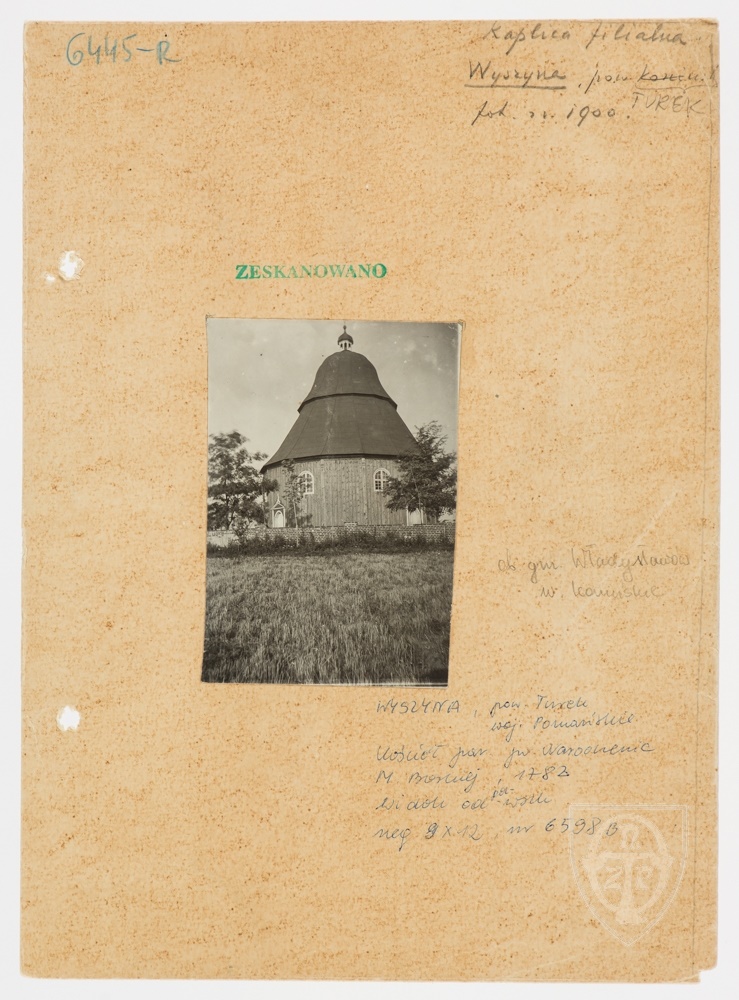 6445-R
Kaplica filialna
Wyszyna, pow. Konin
TUREK
fot. r. 1900.
ZESKANOWANO
ob. gm. Władysławów
w. konińskie
WYSZYNA, pow. Turek
woj. Poznańskie
Kościół par. pw. Narodzenia
M. Boskiej, 1782
widok od pd.-wsch
neg. 9 X 12, nr 6598 B